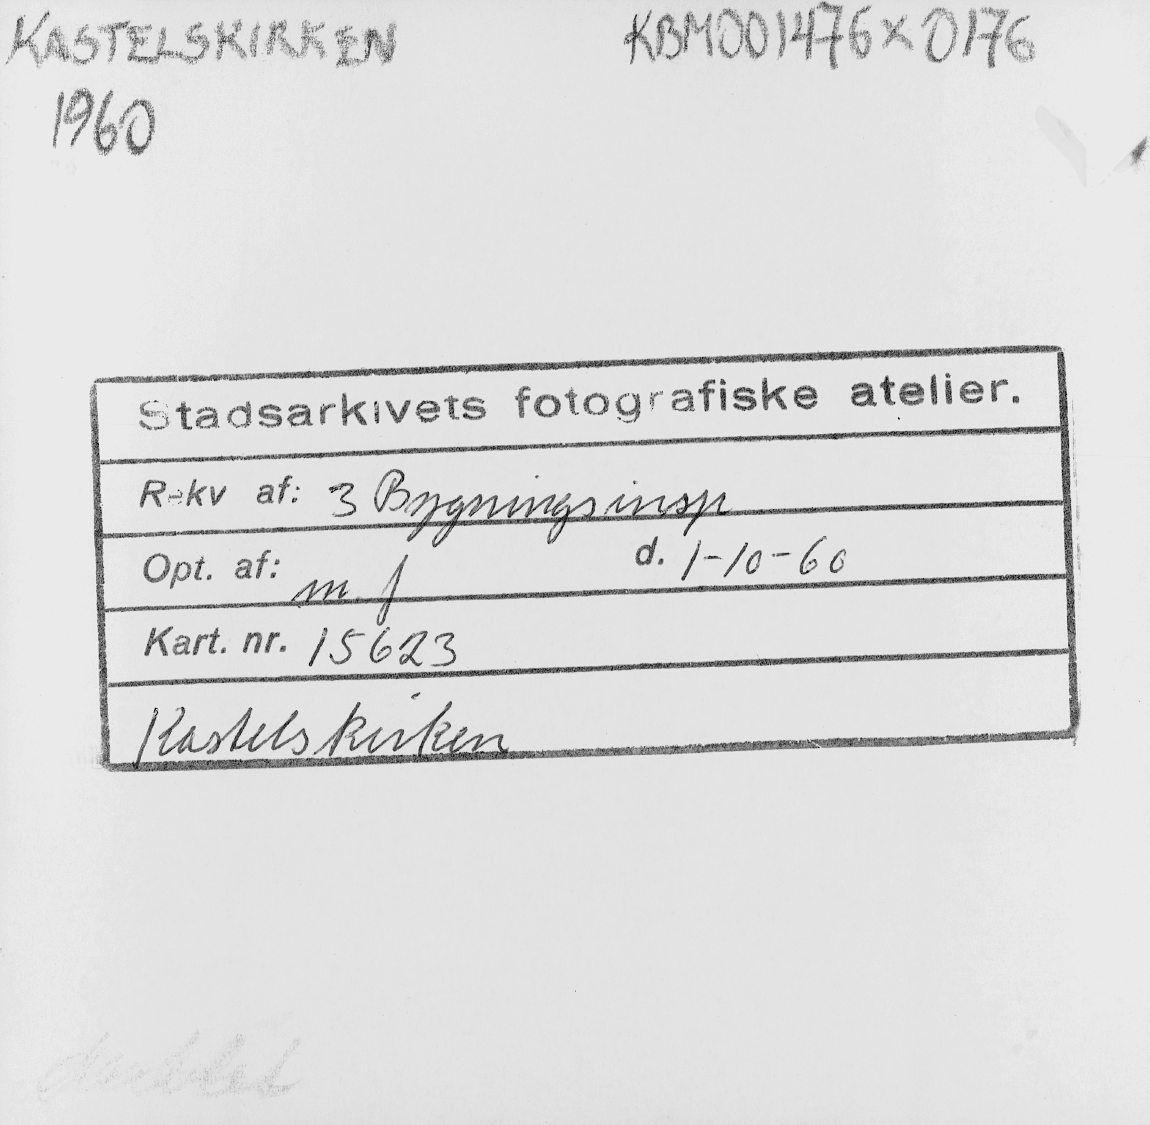 KASTELSKIRKEN KBM001476x0176
1960
Stadsarkivets fotografiske atelier.
Rekv af: 3 Bygningsinsp
Opt. af: m f d. 1-10-60
Kart. nr. 15623
Kastelskirken